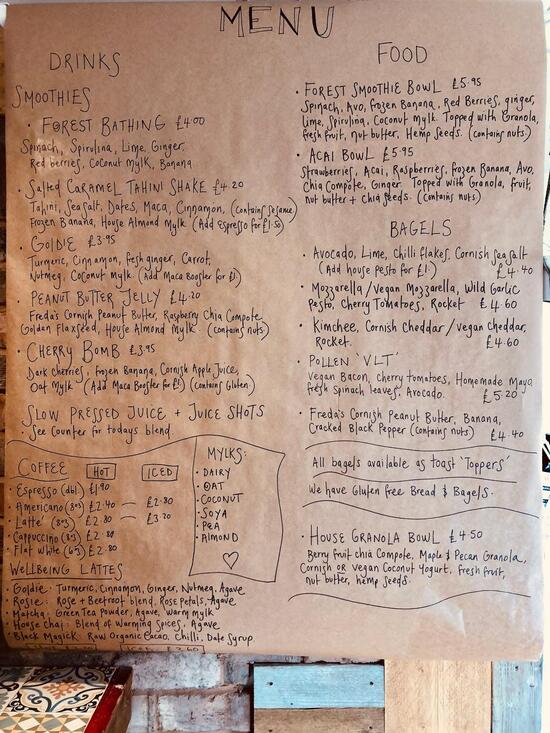 MENU
DRINKS
SMOOTHIES
• FOREST BATHING £4.00
Spinach, Spirulina, Lime, Ginger,
Red berries, Coconut Mylk, Banana
• Salted CARAMEL TAHINI SHAKE £4.20
Tahini, Sea Salt, Dates, Maca, Cinnamon, (contains sesame)
Frozen Banana, House Almond Mylk (Add Espresso for £1.50)
• GOLDIE £3.95
Turmeric, Cinnamon, fesh ginger, Carrot,
Nutmeg, Coconut Mylk. (Add Maca Booster for £1)
• PEANUT BUTTER JELLY £4.20
Freda's Cornish Peanut Butter, Raspberry Chia Compote,
Golden Flaxseed, House Almond Mylk (contains nuts)
• CHERRY BOMB £3.95
Dark Cherries, frozen Banana, Cornish Apple Juice,
Oat Mylk (Add Maca Booster for £1) (Contains Gluten)
SLOW PRESSED JUICE + JUICE SHOTS
• See Counter for todays blend
COFFEE HOT ICED
• Espresso (dbl) £1.90
• Americano (8oz) £2.40 — £2.80
• Latte (8oz) £2.80 — £3.20
• Cappuccino (8oz) £2.80
• Flat white (6oz) £2.80
MYLKS:
• DAIRY
• OAT
• COCONUT
• SOYA
• PEA
• ALMOND
WellBEING LATTES
• Goldie: Turmeric, Cinnamon, Ginger, Nutmeg, Agave
• Rosie: Rose + Beetroot blend, Rose Petals, Agave
• Matcha: Green Tea Powder, Agave, Warm Mylk
• House Chai: Blend of Warming Spices, Agave
• Black Magick: Raw Organic Cacao, Chilli, Date Syrup.
FOOD
• FOREST SMOOTHIE BOWL £5.95
Spinach, Avo, frozen Banana, Red Berries, ginger,
Lime, Spirulina, Coconut Mylk. Topped with Granola,
fresh fruit, nut butter, Hemp Seeds. (contains nuts)
• ACAI BOWL £5.95
Strawberries, Acai, Raspberries, frozen Banana, Avo,
Chia Compote, Ginger. Topped with Granola, fruit,
nut butter + chia seeds. (contains nuts)
BAGELS
• Avocado, Lime, Chilli flakes, Cornish sea salt
(Add house Pesto for £1.) £4.40
• Mozzarella/Vegan Mozzarella, Wild Garlic
Pesto, Cherry Tomatoes, Rocket £4.60
• Kimchee, Cornish Cheddar/vegan cheddar,
Rocket. £4.60
• POLLEN 'VLT'
Vegan Bacon, cherry tomatoes, Homemade Mayo
fresh Spinach leaves, Avocado. £5.20
• Freda's Cornish Peanut Butter, Banana,
Cracked Black Pepper (contains nuts) £4.40
All bagels available as toast 'Toppers'
We have Gluten free Bread & Bagels.
• HOUSE GRANOLA BOWL £4.50
Berry fruit chia Compote, Maple & Pecan Granola,
Cornish or Vegan Coconut Yogurt, fresh fruit,
nut butter, hemp seeds.